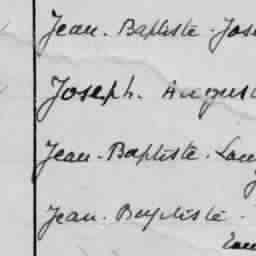 Jean. Baptiste. Jos
Joseph. Augus
Jean. Baptiste. Lau
Jean. Baptiste.